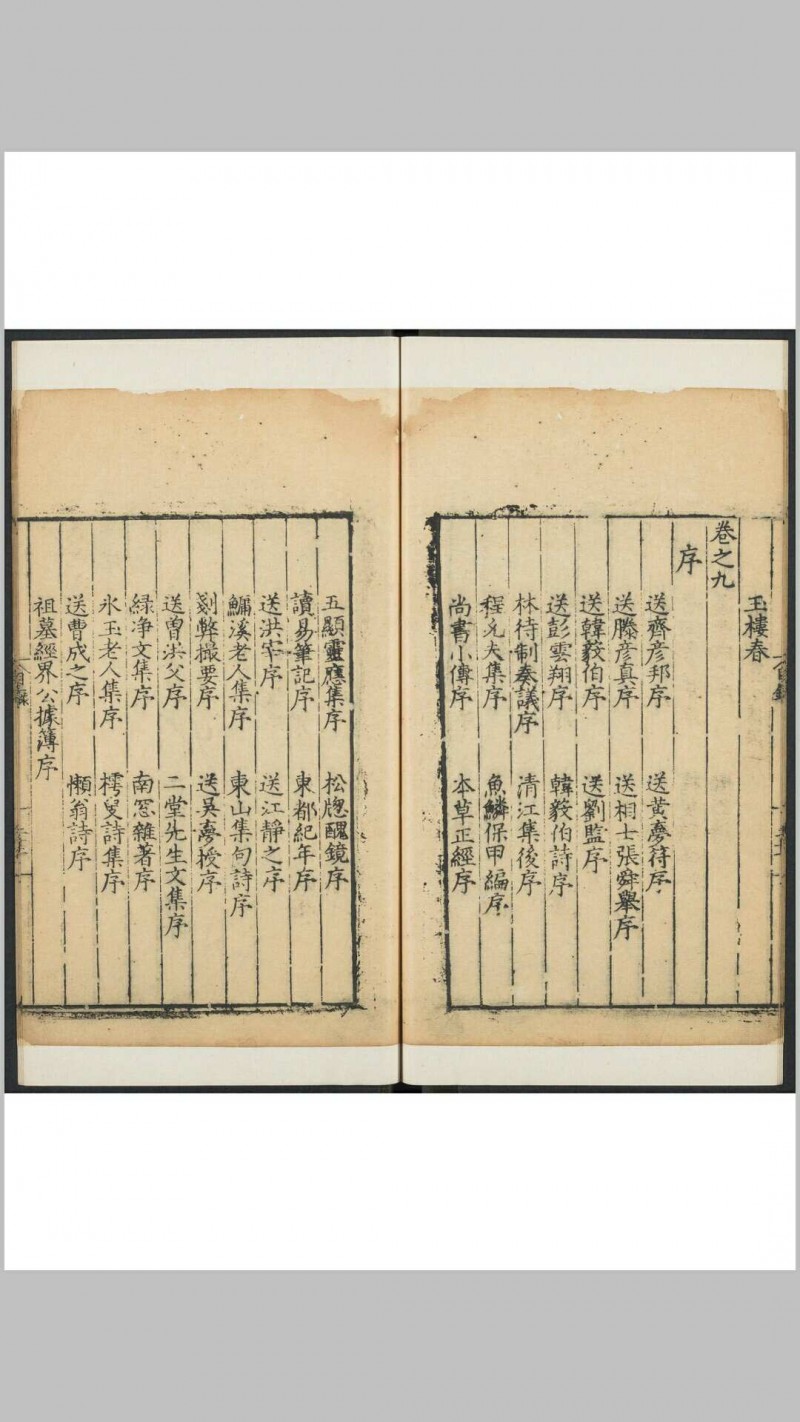 玉樓春
卷之九
序
送齊彦邦序　送黃夢符序
送滕彦真序　送相士張舜舉序
送韓毅伯序　送劉監序
送彭雲翔序　韓毅伯詩序
林待制奏議序　清江集後序
程允夫集序　魚鱗保甲編序
尚書小傳序　本草正經序
五顯靈應集序　松牕醜鏡序
讀易筆記序　東都紀年序
送洪宰序　送江靜之序
鯿溪老人集序　東山集句詩序
剗弊撮要序　送吳夢授序
送曽洪父序　二堂先生文集序
緑净文集序　南窓雜著序
氷玉老人集序　樗叟詩集序
送曹成之序　懶翁詩序
祖墓經界公據簿序